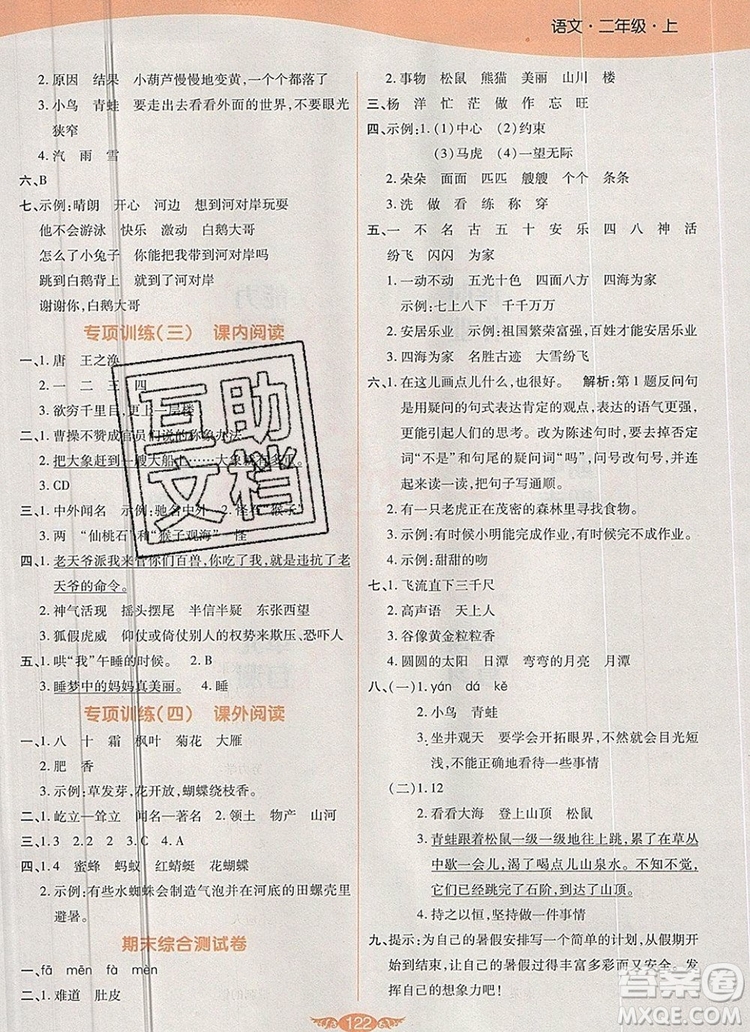 语文·二年级·上
2. 原因 结果 小葫芦慢慢地变黄,一个个都烂了!
3. 小鸟 青蛙 要多出去看看外面的世界,不要眼光
狭窄
4. 汽 雨 雪
六、B
七、示例:晴朗 开心 河边 想到河对岸玩耍
他不会游泳 快乐 激动 白鹅大哥
怎么了小兔子 你可以把我带到河对岸吗
跳到白鹅背上 安全地到达河对岸
谢谢你,白鹅大哥
专项训练(三) 课内阅读
一、1. 唐 王之涣
2. 一 二 三 四
3. 欲穷千里目,更上一层楼
二、1. 曹操不赞成官员们说的称象办法
2. 把大象赶到一艘大船上……大象就有多重。
3. CD
三、1. 中外闻名 示例:驰名中外 2. 怪石 猴子
3. 两 “仙桃石”和“猴子观海” 怪
四、1. 老天爷派我来做你们百兽,你吃了我,就是违抗了老
天爷的命令。
2. 神气活现 摇头摆尾 半信半疑 东张西望
3. 狐假虎威 仰仗或倚仗别人的权势来欺压、恐吓人
五、1. 哄“我”午睡的时候。 2. B
3. 睡梦中的妈妈真美丽。 4. 睡
专项训练(四) 课外阅读
一、1. 八 十 霜 枫叶 菊花 大雁
2. 肥 香
3. 示例:草发芽,花开放,蝴蝶绕枝香。
二、1. 屹立—耸立 著名—有名 2. 领土 物产 山河
三、1. 122 2. 2 3. ②④
四、1. 4 蜜蜂 蚂蚁 红蜻蜓 花蝴蝶
3. 示例:有些水蜘蛛会制造气泡并在河底的田螺壳里
避暑。
期末综合测试卷
一、fā mēn fà mèn
二、1. 难道 肚皮
2. 事物 松鼠 熊猫 美丽 山川 楼房
三、杨 洋 忙 茫 做 作 忘 旺
四、示例:1. (1)中心 (2)约束
(3)马虎 (4)一望无际
2. 朵朵 面面 匹匹 艘艘 个个 条条
3. 洗 做 看 练 称 穿
五、一 不 名 古 五 十 安 乐 四 八 神 活
纷飞 闪闪 为家
1. 一动不动 五光十色 四面八方 四海为家
示例:七上八下 千千万万
2. 安居乐业 示例:祖国繁荣富强,百姓才能安居乐业
3. 四海为家 名胜古迹 大雪纷飞
六、1. 在这儿画点儿什么,也很好。 解析:第1题反问句
是用疑问的句式表达肯定的观点,表达的语气更强,
更能引起人们的思考。改为陈述句,要去掉反问词
“不是”和句尾的疑问词“吗”,问号改句号,并
连起来读一读,把句子写通顺。
2. 有一只老虎正在茂密的森林里寻找食物。
3. 示例:有时候小明能完成作业,有时候完不成作业。
4. 示例:甜甜的吻
七、1. 飞流直下三千尺
2. 高声语 天上人
3. 谷像黄金粒粒香
4. 圆圆的太阳 日潭 弯弯的月亮 月潭
八、(一)1. yán dá kě
2. 小鸟 青蛙
3. 坐井观天 要学会开阔自己的视野,不能目光
短浅
(二)1. 12
2. 看看大海 登上山顶 松鼠
3. 青蛙跟着松鼠一级一级地往上跳,累了在草丛
中歇一会儿,渴了喝一点儿山泉水。终于,
它们已经跳完了石阶,到达了山顶。
4. 持之以恒,坚持不懈地做一件事情
九、提示:为自己的暑假安排写一个简单的计划,从而让自
己的暑假丰富多彩而又有意义,大胆发挥自
己的想象力吧!
122
互助
文档
答案圈
MXQE.COM